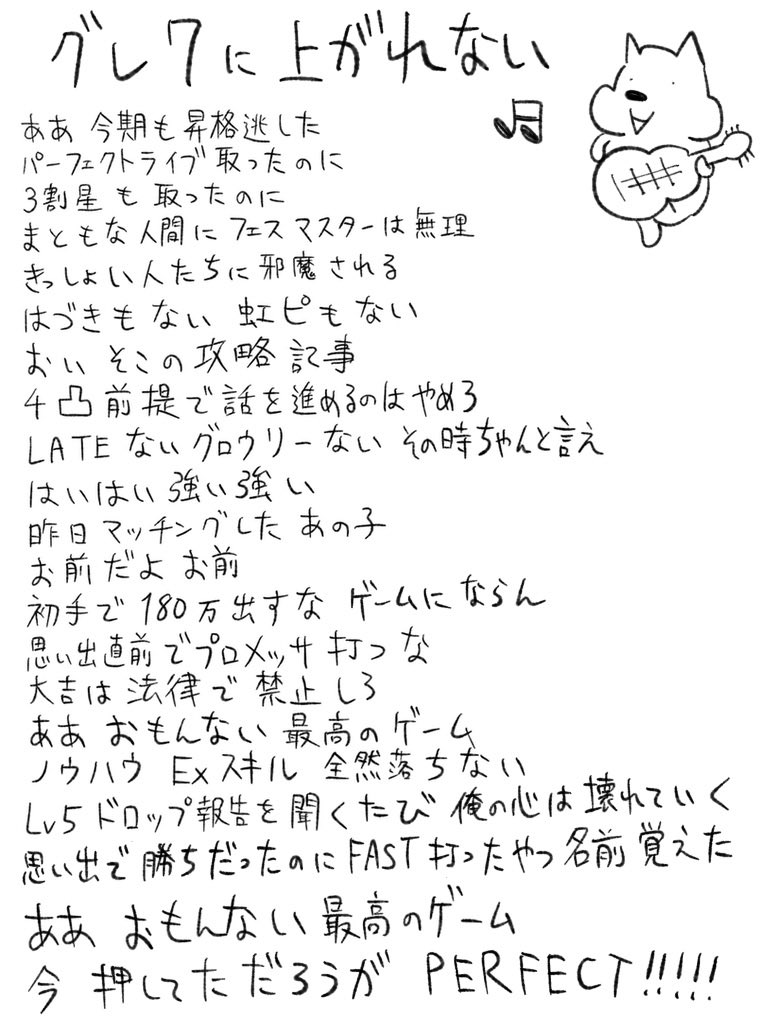 グレ7に上がれない
ああ 今期も昇格逃した
パーフェクトライブ取ったのに
3割星も取ったのに
まともな人間にフェスマスターは無理
きっしょい人たちに邪魔される
はづきもない 虹ピもない
おい そこの攻略記事
4凸前提で話を進めるのはやめろ
LATEない グロウリーない その時ちゃんと言え
はいはい強い強い
昨日マッチングした あの子
お前だよ お前
初手で180万出すな ゲームにならん
思い出直前でプロメッサ打つな
大吉は法律で禁止しろ
ああ おもんない 最高のゲーム
ノウハウ Exスキル 全然落ちない
Lv5ドロップ報告を聞くたび 俺の心は壊れていく
思い出で勝ちだったのにFAST打ったやつ名前覚えた
ああ おもんない 最高のゲーム
今 押してただろうが PERFECT!!!!!